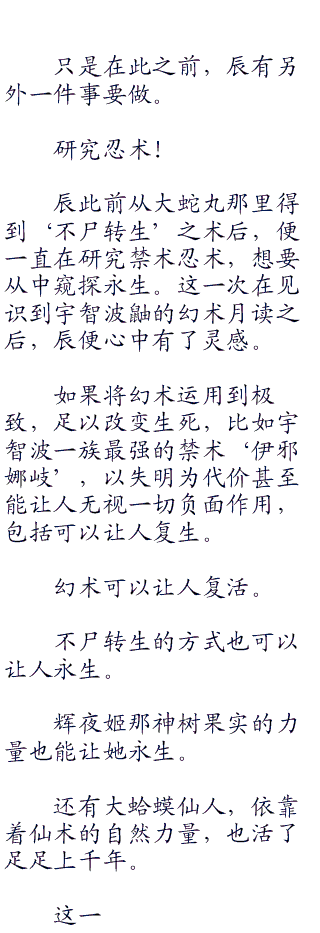 只是在此之前，辰有另
外一件事要做。
研究忍术！
辰此前从大蛇丸那里得
到‘不尸转生’之术后，便
一直在研究禁术忍术，想要
从中窥探永生。这一次在见
识到宇智波鼬的幻术月读之
后，辰便心中有了灵感。
如果将幻术运用到极
致，足以改变生死，比如宇
智波一族最强的禁术‘伊邪
娜岐’，以失明为代价甚至
能让人无视一切负面作用，
包括可以让人复生。
幻术可以让人复活。
不尸转生的方式也可以
让人永生。
辉夜姬那神树果实的力
量也能让她永生。
还有大蛤蟆仙人，依靠
着仙术的自然力量，也活了
足足上千年。
这一